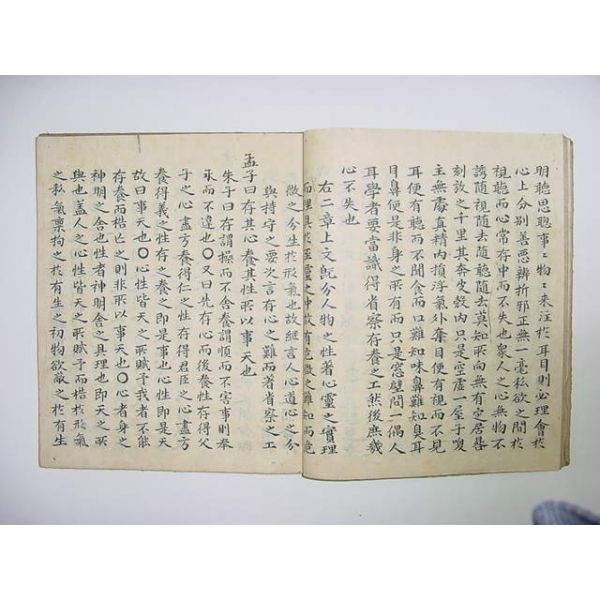 明聽思聰事〻物〻來注於耳目則必理會於
心上分別善惡辨折邪正無一毫私欲之間於
視聽而心常存中而不失也衆人之心無物不
誘隨視隨去隨聽隨去莫知所向無有定居晷
刻數千里其奔皮殼內只是空虛一屋子嗖
主無處眞精內損浮氣外奪目便有視而不見
耳便有聽而不聞食而口難知味鼻難知臭耳
目鼻便是非身之所有而只是窓壁間一偶人
耳學者要當識得省察存養之工然後庶幾
心不失也
右二章上文旣分人物之性著心靈之實理
而理具於至靈之中故有危微之難知而危
微之分生於形氣也故繼言人心道心之分
與持守之要次言存心之難而著省察之工
孟子曰存其心養其性所以事天也
朱子曰存謂操而不舍養謂順而不害事則奉
承而不違也〇又曰先存心而後養性存得父
子之心盡方養得仁之性存得君臣之心盡方
養得義之性存之養之即是事心性即是天
故曰事天也〇心性皆天之所賦予我者不能
存養而梏亡之則非所以事天也〇心者身之
神明之舍也性者神明舍之具理也即天之所
與也盖人之心性皆天之所賦予而梏於形氣
之私氣稟拘之於有生之初物欲蔽之於有生